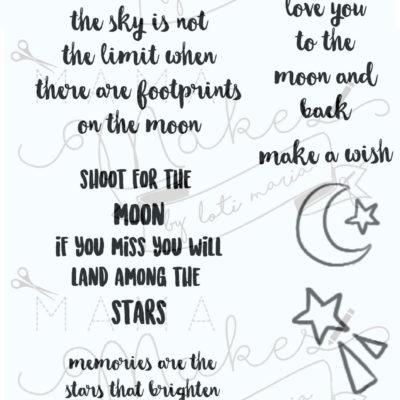 the sky is not
the limit when
there are footprints
on the moon
love you
to the
moon and
back
make a wish
SHOOT FOR THE
MOON
iF YOU MiSS YOU WiLL
LAND AMONG THE
STARS
memories are the
stars that brighten
MAMA
Makes
by loti maria
MAMA
Makes